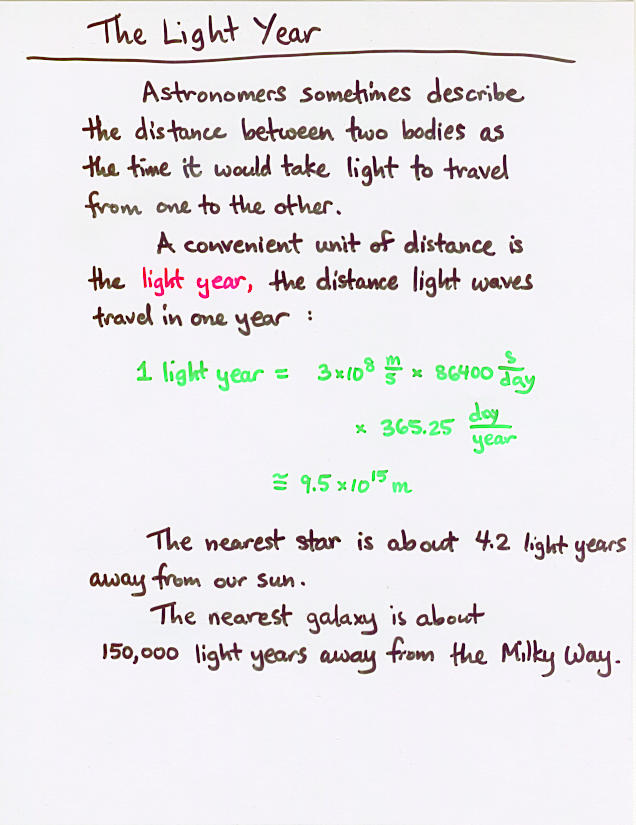 The Light Year
Astronomers sometimes describe
the distance between two bodies as
the time it would take light to travel
from one to the other.
A convenient unit of distance is
the light year, the distance light waves
travel in one year :
1 light year = 3×10⁸ m/s × 86400 s/day
× 365.25 day/year
≅ 9.5×10¹⁵ m
The nearest star is about 4.2 light years
away from our sun.
The nearest galaxy is about
150,000 light years away from the Milky Way.